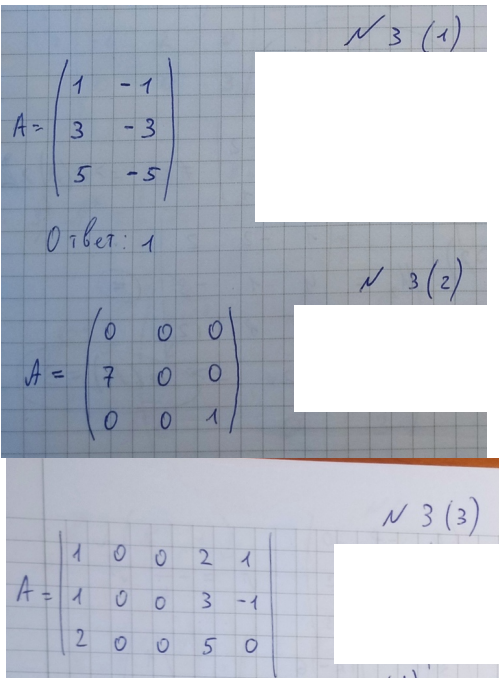 N 3 (1)
A = ( 1 -1
3 -3
5 -5 )
Ответ: 1
N 3 (2)
A = ( 0 0 0
7 0 0
0 0 1 )
N 3 (3)
A = | 1 0 0 2 1
1 0 0 3 -1
2 0 0 5 0 |